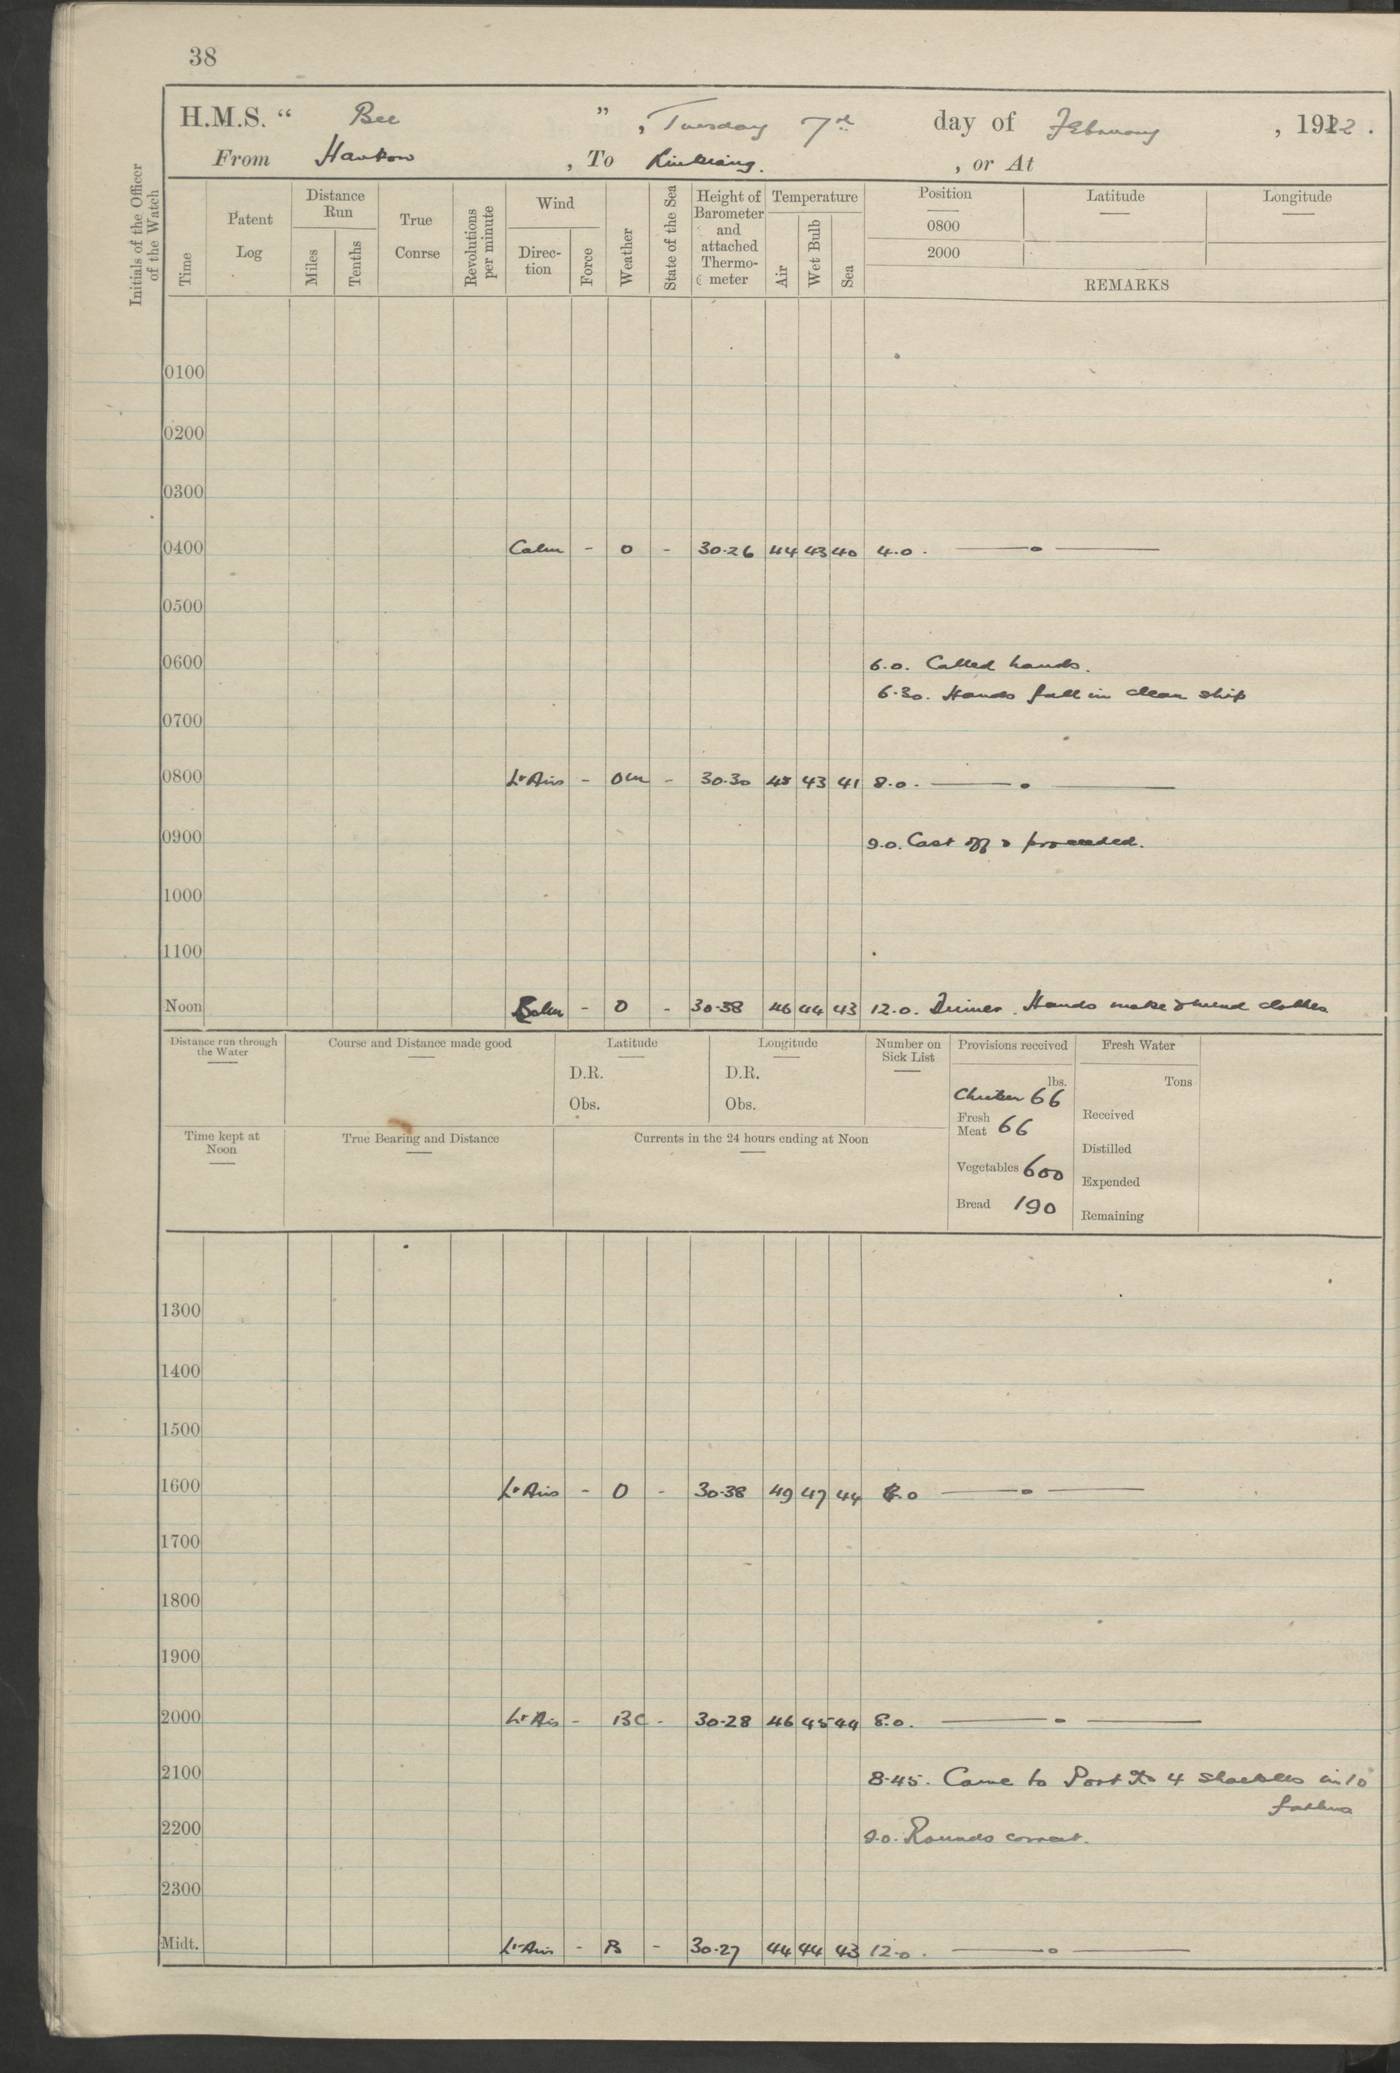 38
H.M.S. " Bee " , Tuesday 7th day of February , 1922 .
From Hankow , To Kiukiang. , or At
Initials of the Officer of the Watch
Time
Patent Log
Distance Run
Miles
Tenths
True Course
Revolutions per minute
Wind
Direction
Force
Weather
State of the Sea
Height of Barometer and attached Thermometer
Temperature
Air
Wet Bulb
Sea
Position
0800
2000
Latitude
Longitude
REMARKS
0100
0200
0300
0400 Calm - O - 30.26 44 43 40 4.0. —— o ——
0500
0600 6.0. Called hands.
6.30. Hands fall in clean ship
0700
0800 Lt Airs - Om - 30.30 45 43 41 8.0. —— o ——
0900 9.0. Cast off & proceeded.
1000
1100
Noon Calm - O - 30.38 46 44 43 12.0. Dinner. Hands make & mend clothes
Distance run through the Water
Course and Distance made good
Latitude
D.R.
Obs.
Longitude
D.R.
Obs.
Number on Sick List
Provisions received
lbs.
66
Fresh Meat 66
Vegetables 600
Bread 190
Fresh Water
Tons
Received
Distilled
Expended
Remaining
Time kept at Noon
True Bearing and Distance
Currents in the 24 hours ending at Noon
1300
1400
1500
1600 Lt Airs - O - 30.38 49 47 44 4.0 —— o ——
1700
1800
1900
2000 Lt Airs - BC - 30.28 46 45 44 8.0. —— o ——
2100 8.45. Came to Port 4 shackles in 10
fathoms
2200 9.0. Rounds correct.
2300
Midt. Lt Airs - B - 30.27 44 44 43 12.0. —— o ——